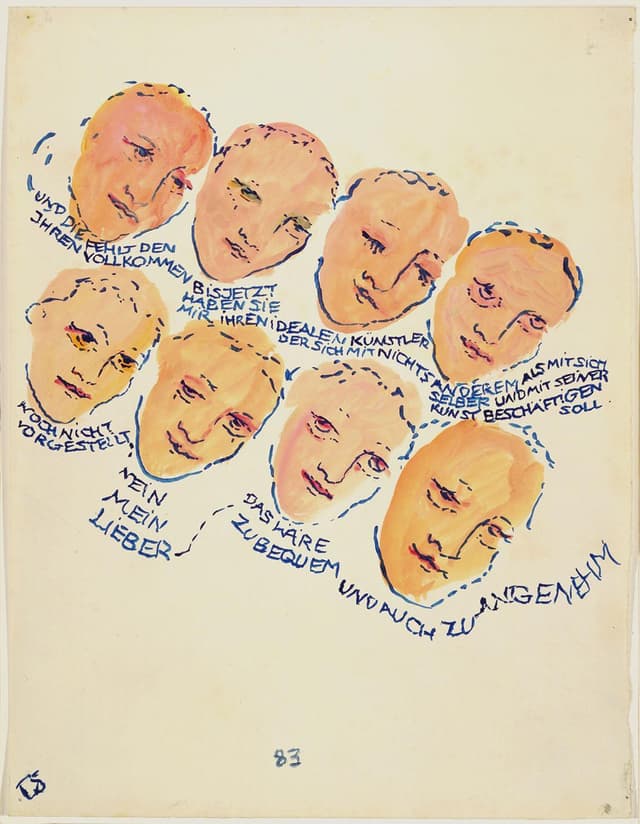 UND DIE FEHLT DEN
JHREN VOLLKOMMEN
BISJETZT
HABEN SIE
MIR IHREN IDEALEN KÜNSTLER
DER SICH MIT NICHTS ANDEREM ALS MIT SICH
SELBER UND MIT SEINER
KUNST BESCHÄFTIGEN
SOLL
NOCH NICHT
VORGESTELLT.
NEIN
MEIN
LIEBER
DAS WÄRE
ZU BEQUEM
UND AUCH ZU ANGENEHM
83
CS